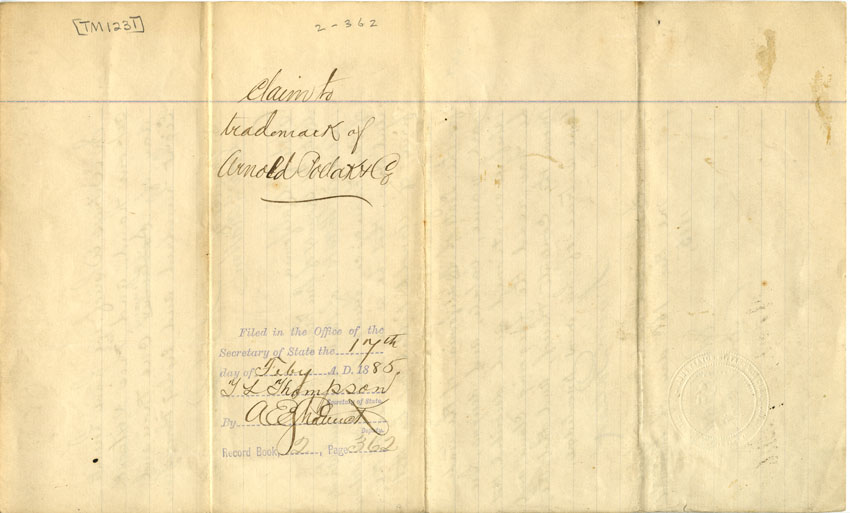 [TM1231]
2-362
Claim to
trademark of
Arnold Pollak & Co
Filed in the Office of the
Secretary of State the 17th
day of Feby A. D. 1885.
T L Thompson
Secretary of State
By A E
Deputy
Record Book 2, Page 362